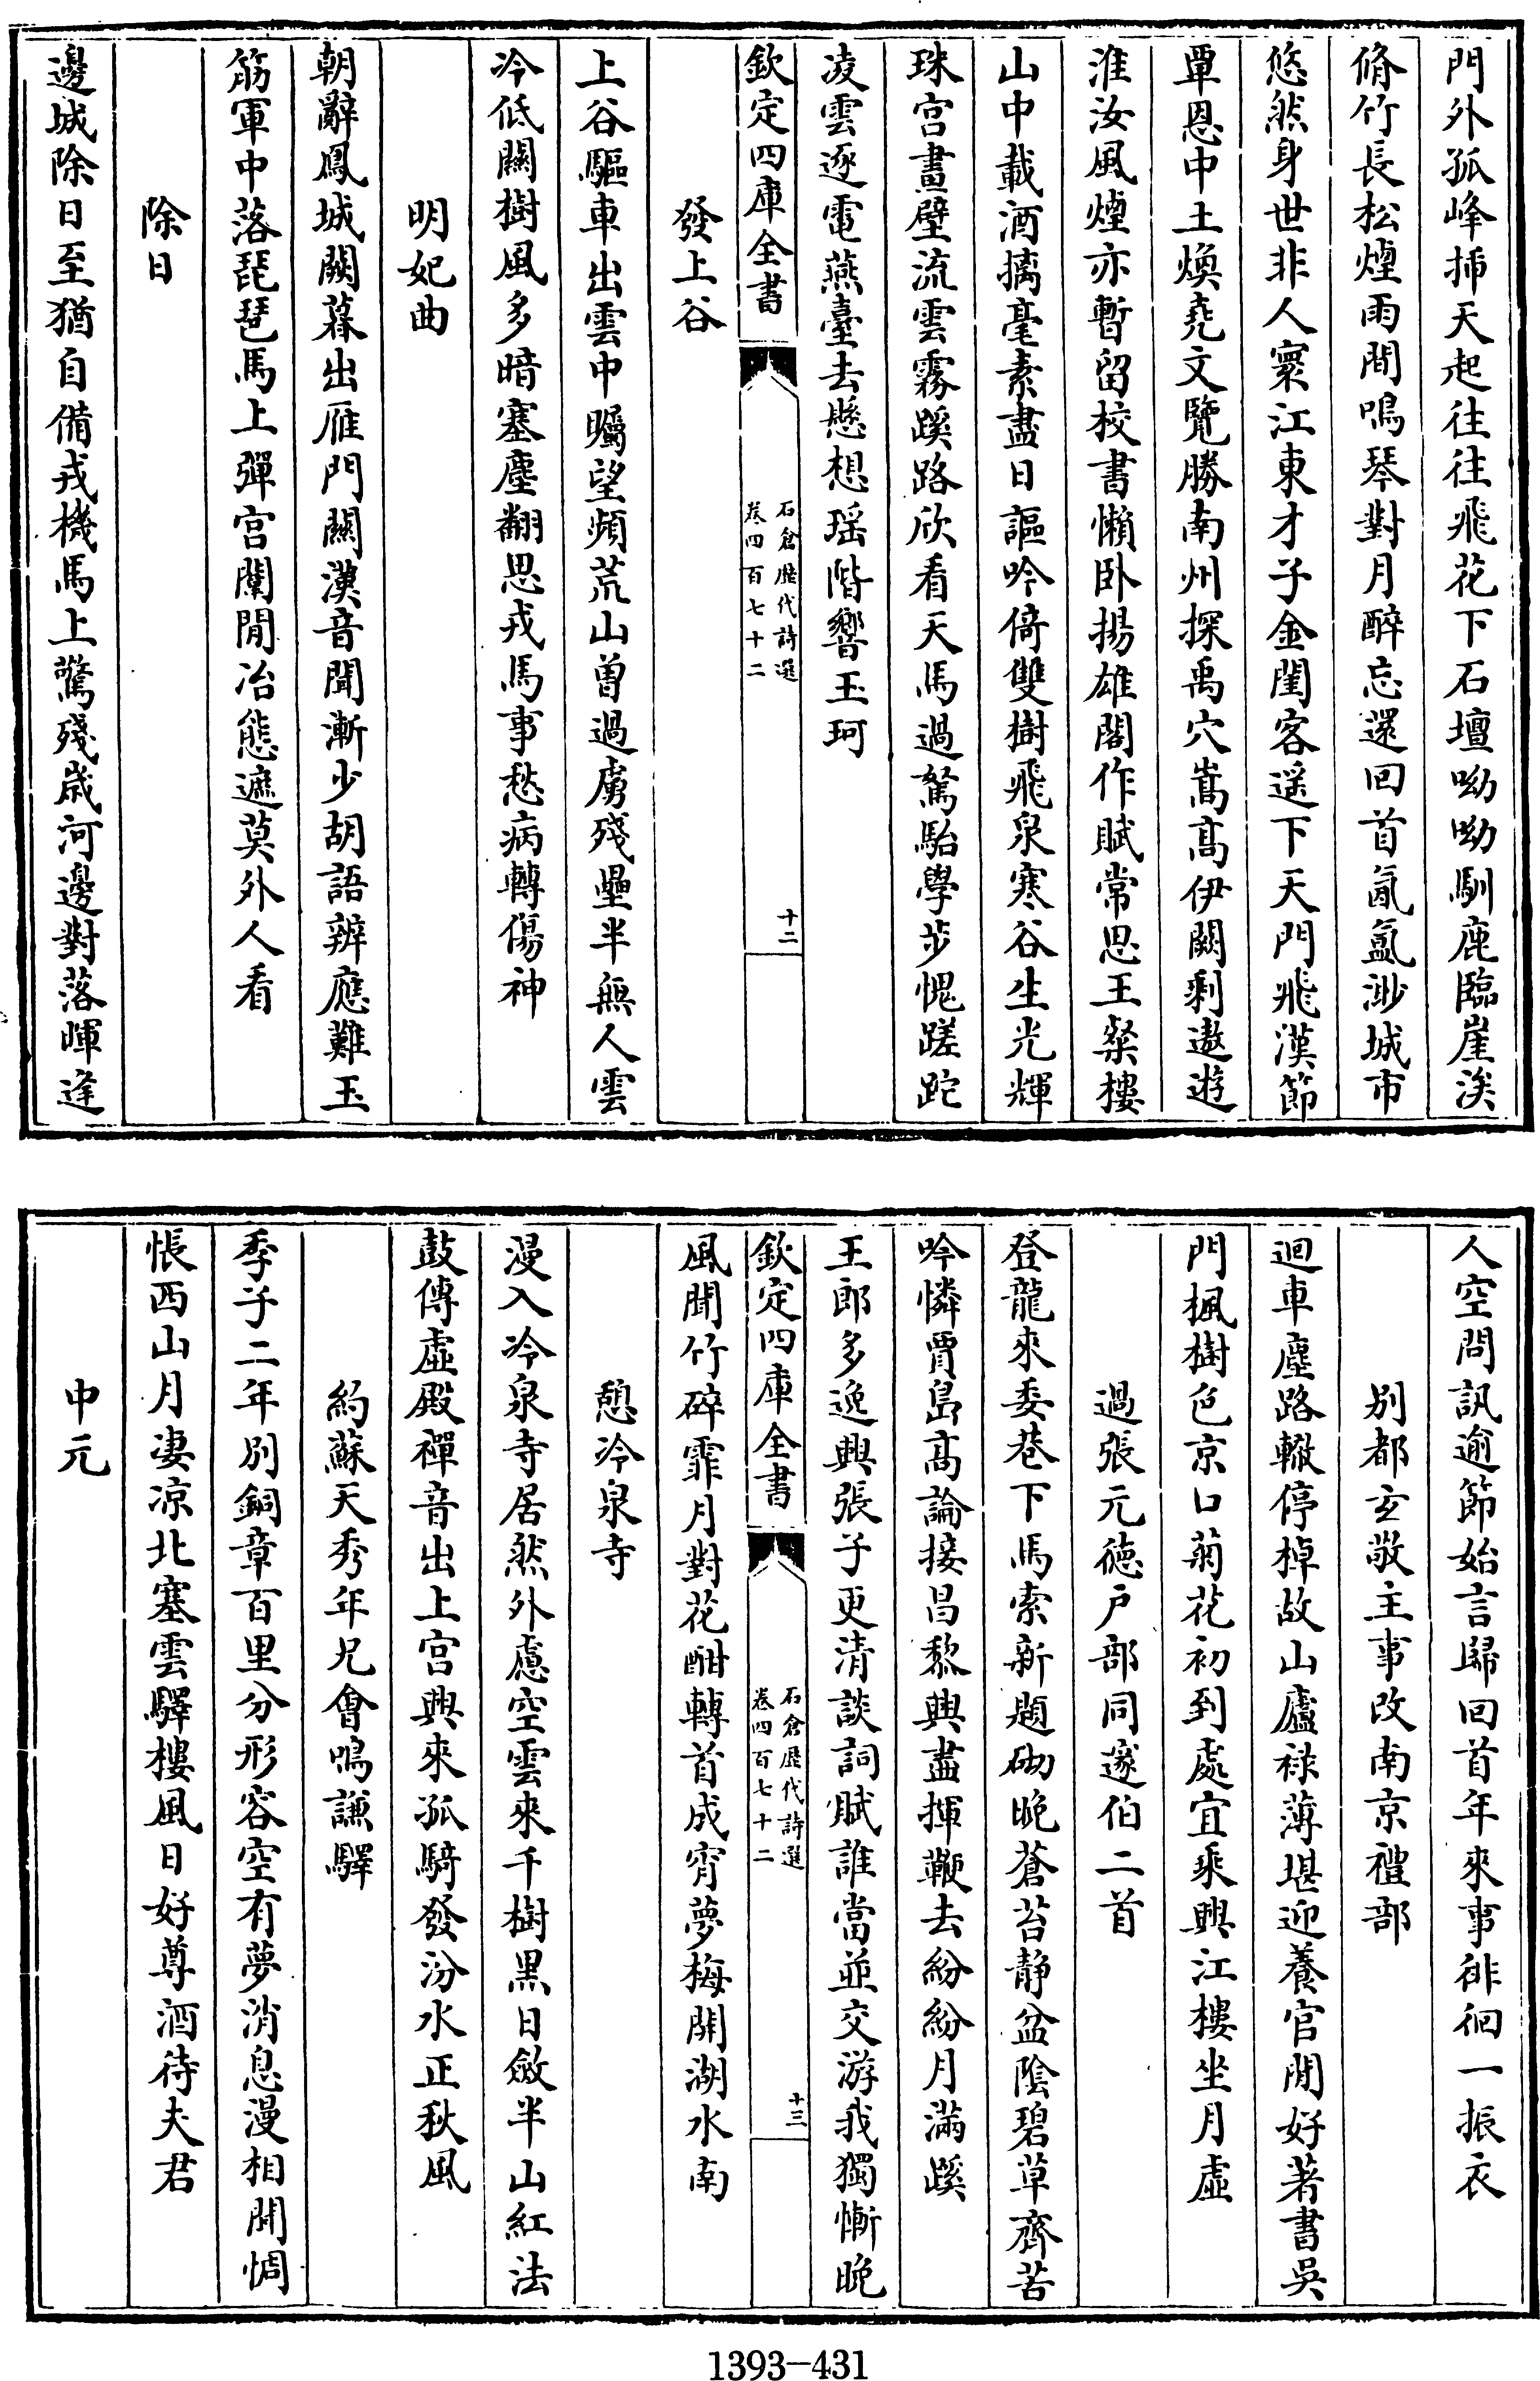 門外孤峰揷天起往往飛花下石壇呦呦馴鹿臨崖涘
脩竹長松煙雨間鳴琴對月醉忘還回首氤氲渺城市
悠然身世非人寰江東才子金閨客遥下天門飛漢節
覃恩中土煥堯文覽勝南州探禹穴嵩髙伊闕剩遨遊
淮汝風煙亦暫留校書懶卧揚雄閣作賦常思王粲樓
山中載酒摛毫素盡日謳吟倚雙樹飛泉寒谷生光輝
珠宫畫壁流雲霧蹊路欣看天馬過駑駘學步愧蹉跎
凌雲逐電燕臺去懸想瑶階響玉珂
欽定四庫全書
石倉歴代詩選
卷四百七十二
十二
發上谷
上谷驅車出雲中矚望頻荒山曾過虜殘壘半無人雲
冷低關樹風多暗塞塵翻思戎馬事愁病轉傷神
明妃曲
朝辭鳳城闕暮出雁門關漢音聞漸少胡語辨應難玉
筋軍中落琵琶馬上彈宫闈閒冶態遮莫外人看
除日
邊城除日至猶自備戎機馬上驚殘歲河邊對落暉逢
人空問訊逾節始言歸回首年來事徘徊一振衣
别都玄敬主事改南京禮部
迴車塵路轍停棹故山廬禄薄堪迎養官閒好著書吳
門楓樹色京口菊花初到處宜乘興江樓坐月虛
過張元德户部同邃伯二首
登龍來委巷下馬索新題砌晚蒼苔静盆陰碧草齊苦
吟憐賈島髙論接昌黎興盡揮鞭去紛紛月滿蹊
王郎多逸興張子更清談詞賦誰當並交游我獨慚晚
欽定四庫全書
石倉歴代詩選
卷四百七十二
十三
風聞竹碎霏月對花酣轉首成宵夢梅開湖水南
憩冷泉寺
漫入冷泉寺居然外慮空雲來千樹黑日斂半山紅法
鼓傳虛殿禪音出上宫興來孤騎發汾水正秋風
約蘇天秀年兄會鳴謙驛
季子二年别銅章百里分形容空有夢消息漫相聞惆
悵西山月凄凉北塞雲驛樓風日好尊酒待夫君
中元
1393-431